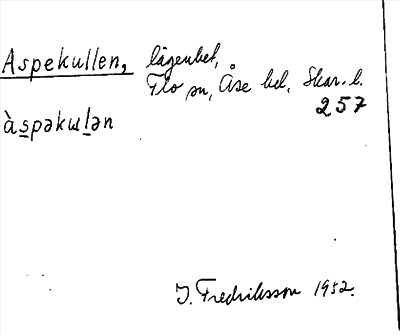 Aspekullen, lägenhet,
Flo sn, Åse hd, Skar. l.
257
àspəkulən
J. Fredriksson 1952.